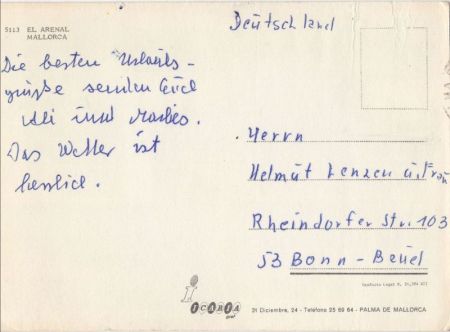 5113 EL ARENAL
MALLORCA
Die besten Urlaubs-
grüße senden Euch
und
Das Wetter ist
herrlich.
Deutschland
Herrn
Helmut Lenzen u. Frau
Rheindorfer Str. 103
53 Bonn - Beuel
ICARIA
21 Diciembre, 24 - Teléfono 25 69 64 - PALMA DE MALLORCA